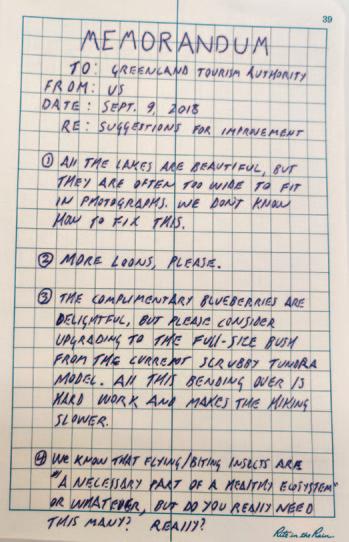 39
MEMORANDUM
TO: GREENLAND TOURISM AUTHORITY
FROM: US
DATE: SEPT. 9, 2018
RE: SUGGESTIONS FOR IMPROVEMENT
① All THE LAKES ARE BEAUTIFUL, BUT
THEY ARE OFTEN TOO WIDE TO FIT
IN PHOTOGRAPHS. WE DON'T KNOW
HOW TO FIX THIS.
② MORE LOONS, PLEASE.
③ THE COMPLIMENTARY BLUEBERRIES ARE
DELIGHTFUL, BUT PLEASE CONSIDER
UPGRADING TO THE FULL-SIZE BUSH
FROM THE CURRENT SCRUBBY TUNDRA
MODEL. All THIS BENDING OVER IS
HARD WORK AND MAKES THE HIKING
SLOWER.
④ WE KNOW THAT FLYING/BITING INSECTS ARE
"A NECESSARY PART OF A HEALTHY ECOSYSTEM"
OR WHATEVER, BUT DO YOU REALLY NEED
THIS MANY? REALLY?
Rite in the Rain